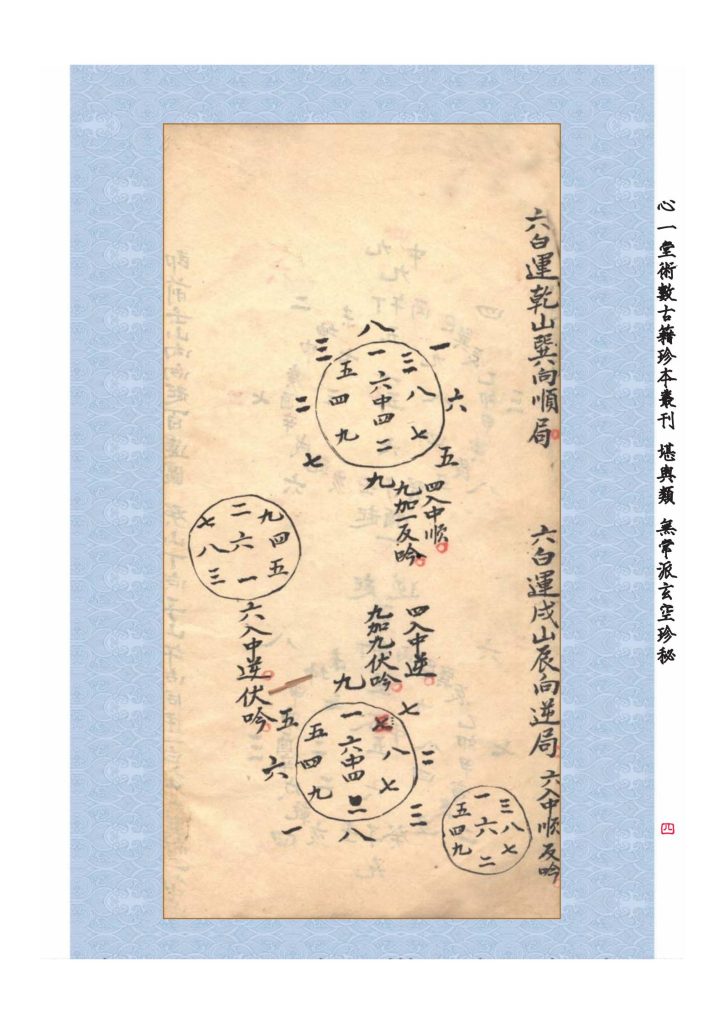 心一堂術數古籍珍本叢刊 堪輿類 無常派玄空珍秘
四
六白運乾山巽向順局
一
六
五
八
三八七
一六中四二
五四九
九
三
二
七
四入中順
九加一反吟
六白運戌山辰向逆局 六入中順反吟
三八七
一六二
五四九
四入中逆
九加九伏吟
七
二
三
九
八七
一六中四
五四九
八
五
六
一
九四五
二六一
七八三
六入中逆伏吟